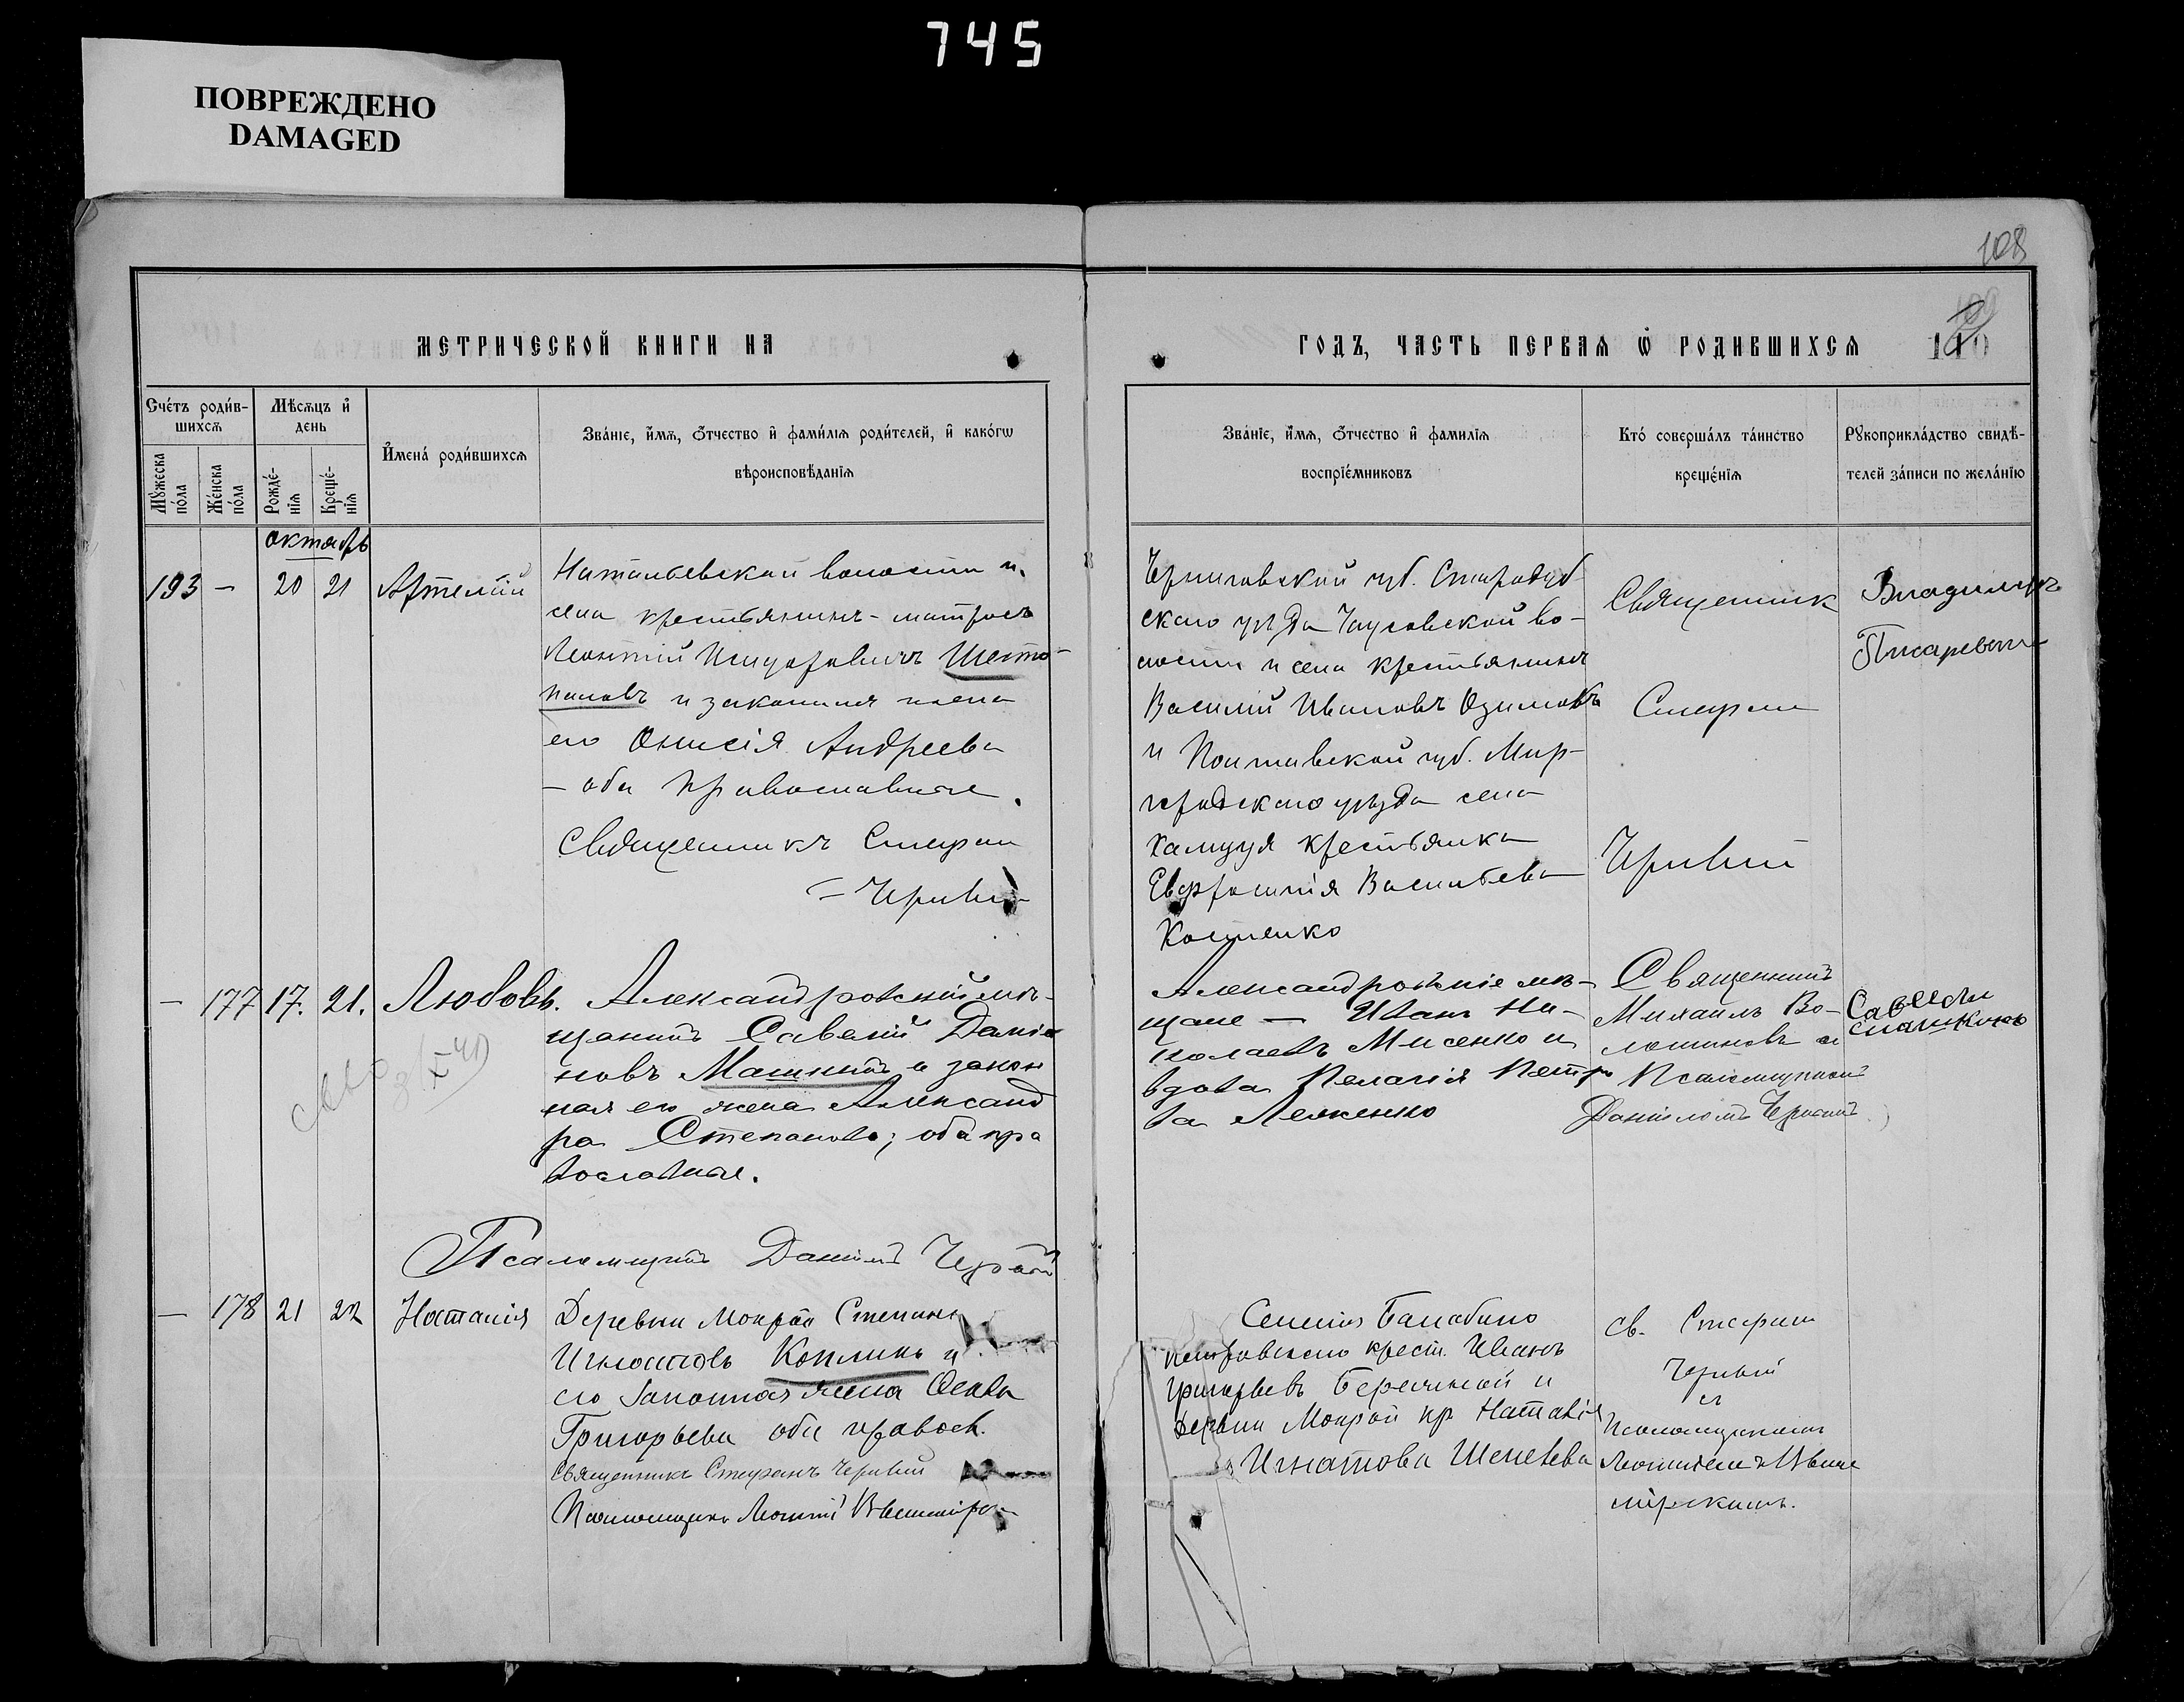 745
ПОВРЕЖДЕНО
DAMAGED
108
МЕТРИЧЕСКОЙ КНИГИ НА
ГОДЪ, ЧАСТЬ ПЕРВАЯ Ѡ РОДИВШИХСѦ
110
Счетъ родив-
шихсѧ
Мѣсѧцъ и
день
Мужеска
пола
Женска
пола
Рожде-
нія
Креще-
нія
Имена родившихсѧ
Званіе, имѧ, ѻтчество и фамиліѧ родителей, и какогѡ
вѣроисповѣданіѧ
Званіе, имѧ, ѻтчество и фамиліѧ
воспріемниковъ
Кто совершалъ таинство
крещеніѧ
Рукоприкладство свидѣ-
телей записи по желанію
октябрь
193 — 20 21 Артемій
Натальевской волости и
села крестьянинъ-матросъ
Леонтій Исидоровичъ Шесто-
паловъ и законная жена
его Онисія Андреева
— оба православные.
Священникъ Стефан
Чернвий
Черниговской губ. Стародуб
скаго уѣзда Чауговской во-
лости и села крестьянинъ
Василій Ивановъ
и Полтавской губ. Мир-
городскаго уѣзда села
крестьянка
Евфросинія Васильева
Костенко
Священник
Стефан
Владимиръ
Писаревский
— 177 17. 21. Любовь.
Александровскій мѣ-
щанинъ Савелій Даніи
ловъ Машкинъ и закон
ная его жена Александ
ра Степанова; оба пра
вославные.
Псаломщикъ Даниилъ Черный
Александровскіе мѣ-
щане — Иванъ Ни-
колаевъ Мисенко и
вдова Пелагія Петро
ва
Священникъ
Михаилъ Во-
лошиновъ и
Псаломщикомъ
Даниломъ Чернымъ
Савелий
— 178 21 22 Наталія
Деревни Мокрой Степанъ
Игнатовъ Коплинъ и
его законная жена
Григорьева оба правосл.
Священникъ Стефанъ
Псаломщикъ Леонтій
Селенія Балабино
Петровскаго крест. Иванъ
Григорьевъ и
деревни Мокрой кр. Наталія
Игнатова Шепелева
св. Стефан
и
Псаломщикомъ